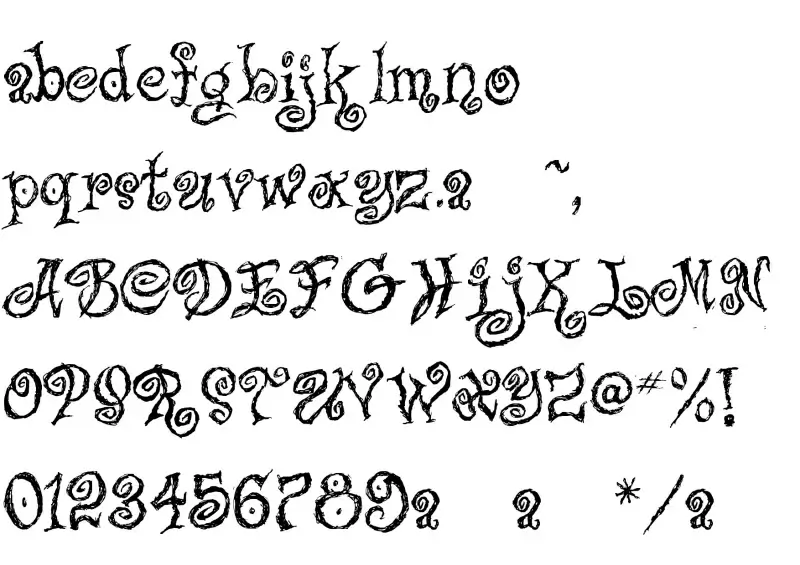 abcdefghijklmno
pqrstuvwxyz.a ~,
ABCDEFGHIJKLMN
OPQRSTUVWXYZ@#%!
0123456789a a */a